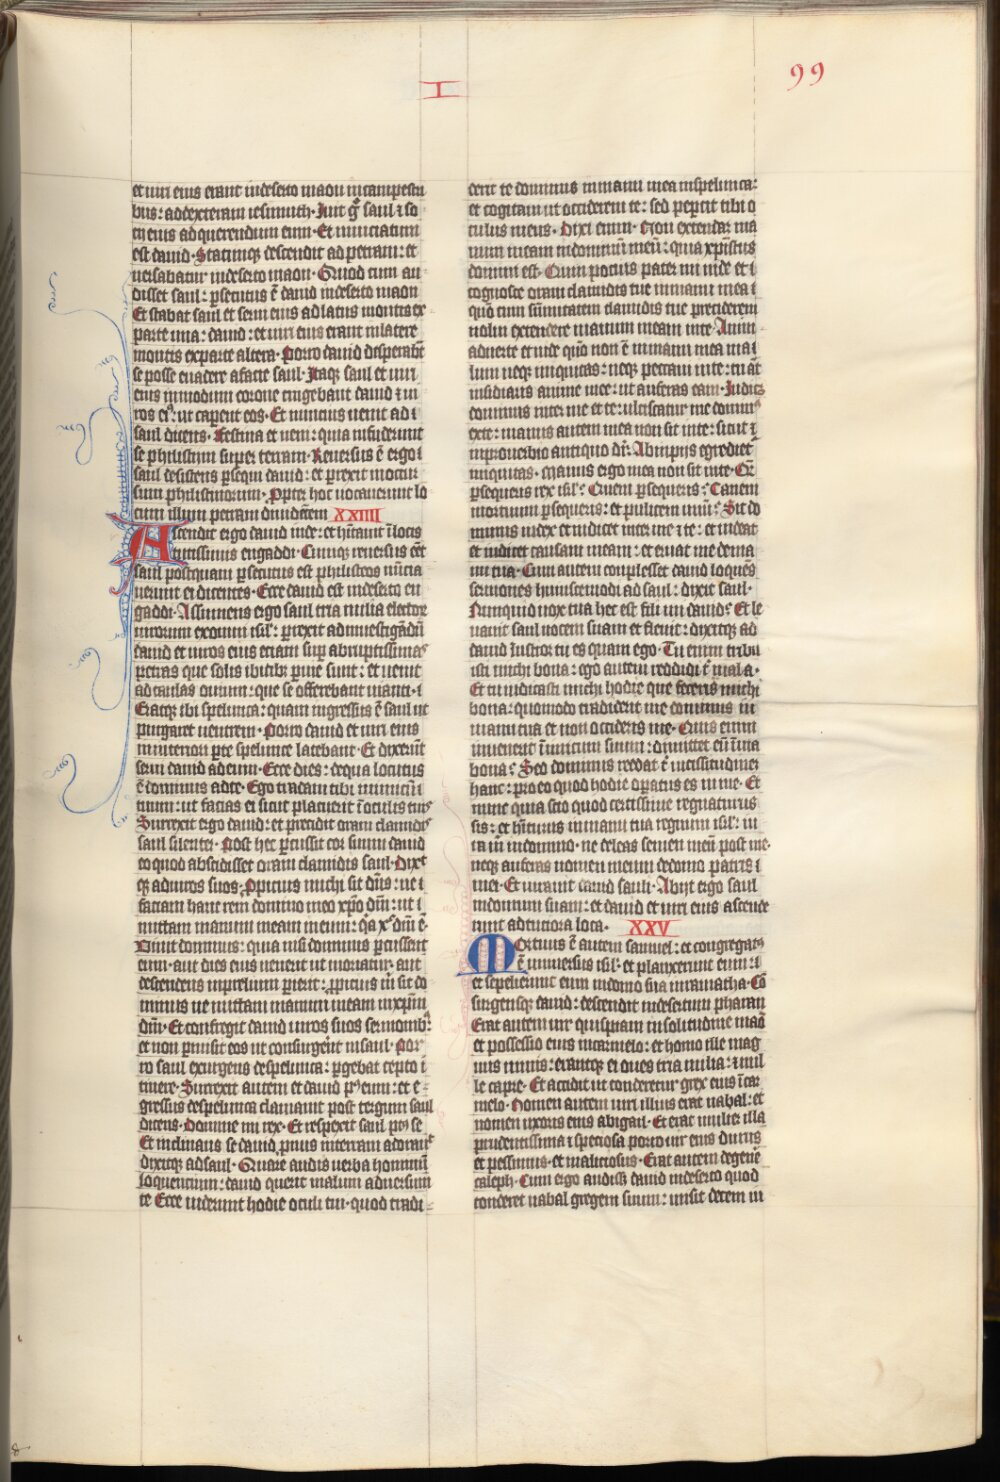 I
99
et uiri eius erant ĩ deserto maon in campestri
bus: ad dexteram iesimuth. Iuit gͦ saul ⁊ so
cij eius ad querendum eum. Et nunciatum
est dauid. Statimqꝫ descendit ad petram: et
uersabatur in deserto maon. Quod cum au
disset saul: ꝑsecutus ẽ dauid in deserto maon
Et ibat saul et uiri eius ad latus montis ex
parte una: dauid: et uiri eius erant in latere
montis ex parte altera. Porro dauid desperabat̃
se posse euadere a facie saul. Itaqꝫ saul et uiri
eius in modum corone cingebant dauid ⁊ ui
ros eiꝰ: ut caperent eos. Et nuncius uenit ad
saul dicens. Festina et ueni: quia infuderunt
se philistiim super terram. Reuersus ẽ ergo
saul desistens ꝑsequi dauid: et perrexit in occur
sum philistinorum. Propter hoc uocauerunt lo
cum illum petram diuidẽtem XXIIII
Ascendit ergo dauid inde: et hĩtauit ĩ locis
tutissimis engaddi. Cumqꝫ reuersus eẽt
saul postquam ꝑsecutus est philisteos nũcia
uerunt ei dicentes. Ecce dauid est in deserto en
gaddi. Assumens ergo saul tria milia elector
uirorum ex omni isrl̃: perrexit ad inuestigãdũ
dauid et uiros eius etiam suꝑ abruptissimas
petras que solis ibicibꝫ ꝑuie sunt: et uenit
ad caulas ouium: que se offerebant uianti.
Eratqꝫ ibi spelunca: quam ingressus ẽ saul ut
purgaret uentrem. Porro dauid et uiri eius
in interiori ꝑte spelunce latebant. Et dixerũt
serui dauid ad eum. Ecce dies: de qua locutus
ẽ dominus ad te. Ego tradam tibi inimicũ
tuum: ut facias ei sicut placuerit ĩ oculis tuis
Surrexit ergo dauid: et precidit oram clamidis
saul silenter. Post hec percussit cor suum dauid
eo quod abscidisset oram clamidis saul. Dixit
qꝫ ad uiros suos. Propicius michi sit dñs: ne
faciam hanc rem domino meo xp̃o dñi: ut
mittam manum meam in eum: qͥa xp̃s dñi ẽ.
Viuit dominus: quia nisi dominus percusserit
eum. aut dies eius uenerit ut moriatur. aut
descendens in prelium perierit: propicius m̃ sit do
minus ne mittam manum meam in xp̃m
dñi. Et confregit dauid uiros suos sermonibꝫ:
et non permisit eos ut consurgerẽt in saul. Por
ro saul exurgens de spelunca: pergebat cepto i
tinere. Surrexit autem et dauid pꝰ eum: et e
gressus de spelunca clamauit post tergum saul
dicens. Domine mi rex. Et respexit saul pꝰ se
Et inclinans se dauid pronus in terram adorauit
dixitqꝫ ad saul. Quare audis uerba hominũ
loquencium: dauid querit malum aduersum
te Ecce uiderunt hodie oculi tui. quod tradi
derit te dominus in manu mea in spelunca:
et cogitaui ut occiderem te: sed pepercit tibi o
culus meus. Dixi enim. Non extendam ma
num meam in dominũ meũ: quia xp̃istus
domini est. Quin pocius pater mi uide et
cognosce oram clamidis tue in manu mea
quõ cum sũmitatem clamidis tue preciderem
nolui extendere manum meam in te. Anim
aduerte et uide quõ non ẽ in manu mea ma
lum neqꝫ iniquitas: neqꝫ peccaui in te: tu aũt
insidiaris anime mee: ut auferas eam. Iudicet
dominus inter me et te: ulciscatur me dominꝰ
ex te: manus autem mea non sit in te: sicut
in prouerbio antiquo dr̃. Ab impijs egrediet̃
iniquitas. Manus ergo mea non sit in te. Quẽ
ꝑsequeris rex isrl̃: Quem ꝑsequeris: Canem
mortuum ꝑsequeris: et pulicem unũ: Sit do
minus iudex et iudicet inter me ⁊ te: et uideat
et iudicet causam meam: et eruat me de ma
nu tua. Cum autem complesset dauid loquẽs
sermones huiuscemodi ad saul: dixit saul.
Nunquid uox tua hec est fili mi dauid: Et le
uauit saul uocem suam et fleuit: dixitqꝫ ad
dauid Iustior tu es quam ego. Tu enim tribu
isti michi bona: ego autem reddidi t̃ mala.
Et tu indicasti michi hodie que feceris michi
bona: quomodo tradiderit me dominus in
manu tua et non occideris me. Quis enim
inuenerit ĩimicum suum: dimittet eũ ĩ uia
bona: Sed dominus reddat t̃ uicissitudinem
hanc: pro eo quod hodie operatus es in me. Et
nunc quia scio quod certissime regnaturus
sis: et hĩturus in manu tua regnum isrl̃: iu
ra m̃ in domino. ne deleas semen meũ post me.
neqꝫ auferas nomen meum de domo patris
mei. Et iurauit dauid sauli. Abijt ergo saul
in domum suam: et dauid et uiri eius ascende
runt ad tuciora loca. XXV
Mortuus ẽ autem samuel: et congregatꝰ
ẽ uniuersus isrl̃. et planxerunt eum:
et sepelierunt eum in domo sua in ramatha. Cõ
surgensqꝫ dauid: descendit in desertum pharan
Erat autem uir quispiam in solitudine maõ
et possessio eius in carmelo: et homo ille mag
nus nimis: erantqꝫ ei oues tria milia: ⁊ mil
le capre. Et accidit ut tonderetur grex eius ĩ car
melo. Nomen autem uiri illius erat nabal: et
nomen uxoris eius abigail. Et erat mulier illa
prudentissima ⁊ speciosa porro uir eius durus
et pessimus. et maliciosus. Erat autem de gene
caleph. Cum ergo audisset dauid in deserto quod
tonderet nabal gregem suum: misit decem iu